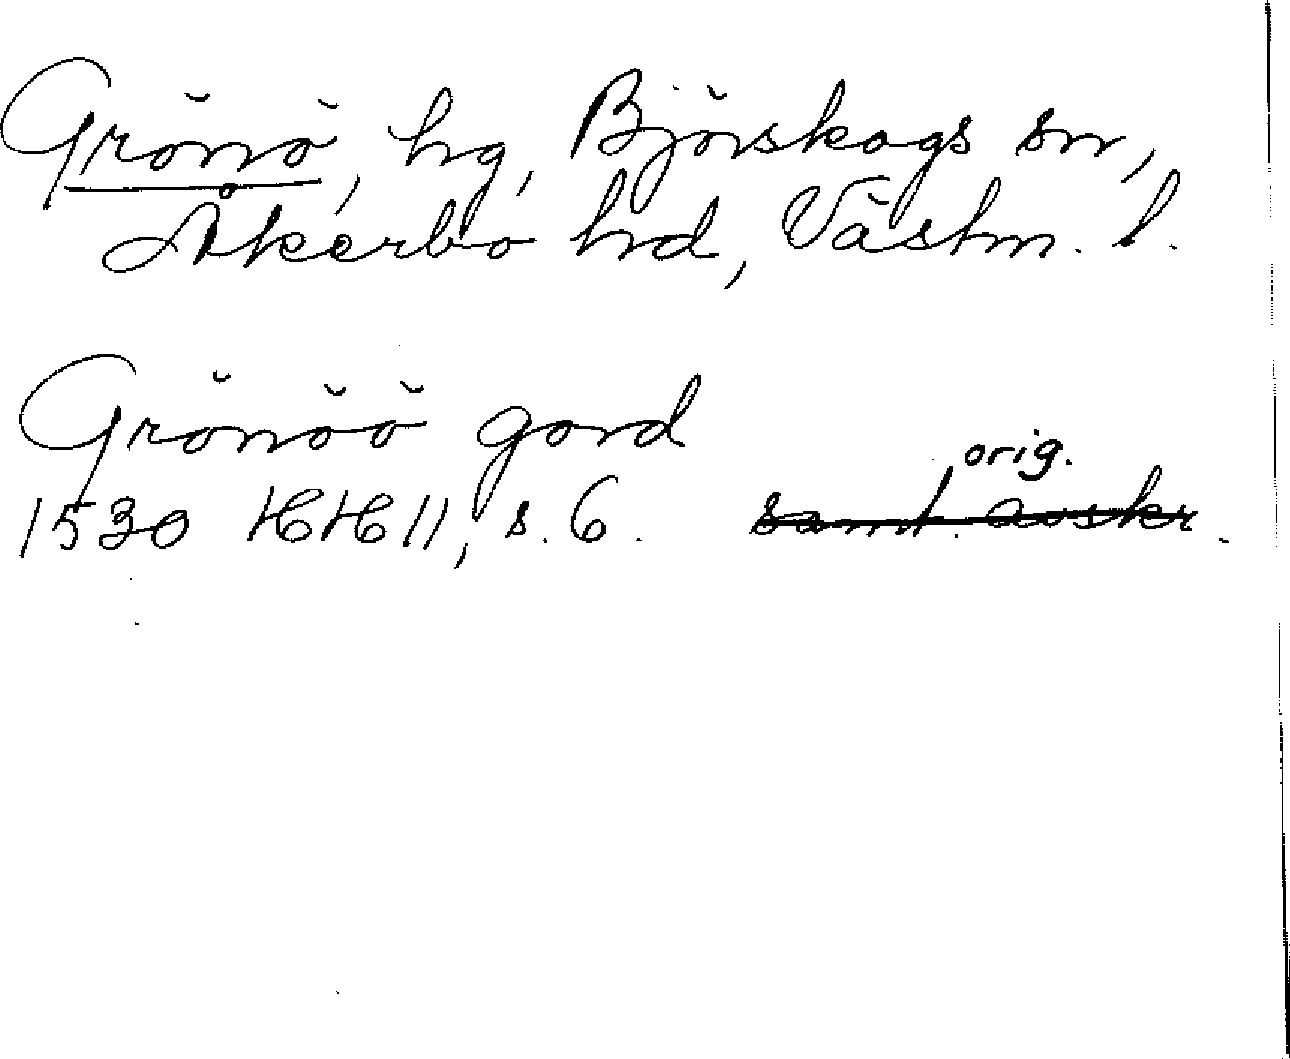 Grönö, hg, Björskogs sn,
Åkerbo hd, Västm. l.
Grönöö gord
orig.
1530 HH 11, s. 6. samt. avskr.